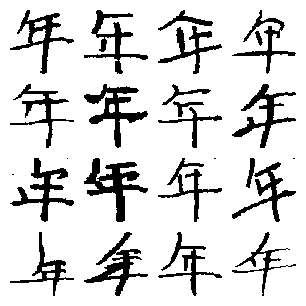 年年年年
年年年年
年年年年
年年年年